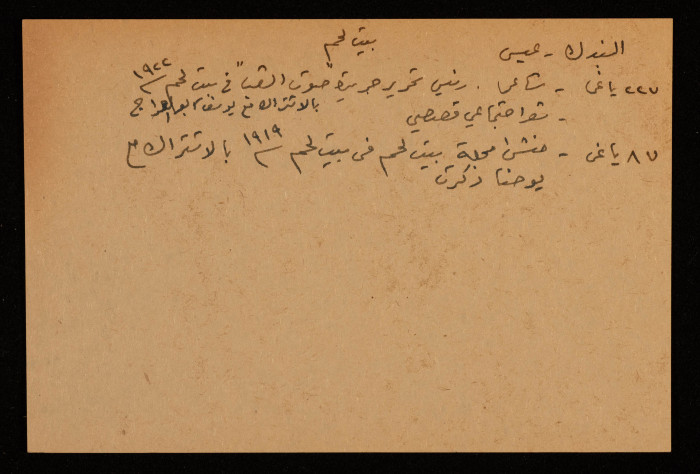 بيت لحم
البندك - عيسى
٢٢٧ ياغي - شاعر . رئيس تحرير جريدة "صوت الشعب" في بيت لحم ١٩٢٢
بالاشتراك مع يوسف
- شعر اجتماعي قصصي
٨٧ ياغي - منشئ مجلة بيت لحم في بيت لحم ١٩١٩ بالاشتراك مع
يوحنا دكرت